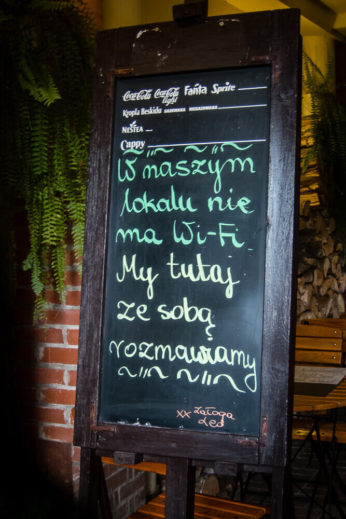 Coca-Cola Coca-Cola light Fanta Sprite
Kropla Beskidu
NESTEA
Cappy
W naszym
lokalu nie
ma Wi-Fi
My tutaj
ze sobą
rozmawiamy
xx załoga